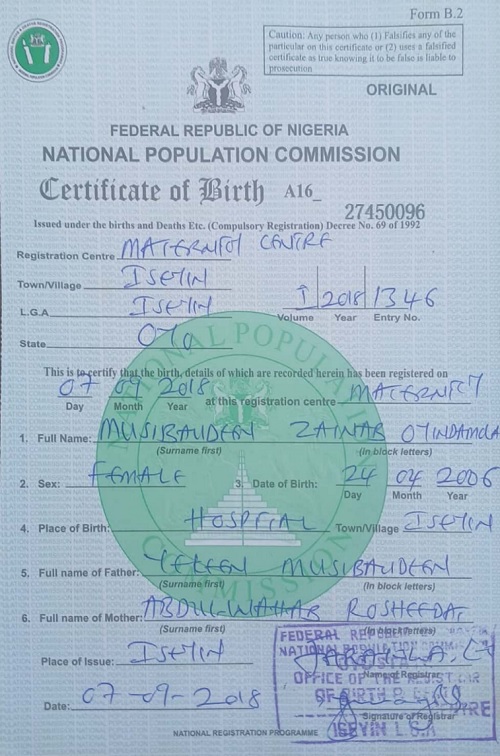 Form B.2
Caution: Any person who (1) Falsifies any of the
particular on this certificate or (2) uses a falsified
certificate as true knowing it to be false is liable to
prosecution
ORIGINAL
FEDERAL REPUBLIC OF NIGERIA
NATIONAL POPULATION COMMISSION
Certificate of Birth A16_
27450096
Issued under the births and Deaths Etc. (Compulsory Registration) Decree No. 69 of 1992
Registration Centre MATERNITY CENTRE
Town/Village ISEYIN
L.G.A ISEYIN
I 2018 1346
Volume Year Entry No.
State OYO
This is to certify that the birth, details of which are recorded herein has been registered on
07 09 2018 at this registration centre MATERNITY
Day Month Year
1. Full Name: MUSIBAUDEEN ZAINAB OYINDAMOLA
(Surname first) (In block letters)
2. Sex: FEMALE 3. Date of Birth: 24 04 2006
Day Month Year
4. Place of Birth: HOSPITAL Town/Village ISEYIN
5. Full name of Father: YEKEEN MUSIBAUDEEN
(Surname first) (In block letters)
6. Full name of Mother: ABDUL-WAHAB ROSHEEDAT
(Surname first) (In block letters)
Place of Issue: ISEYIN
Name of Registrar
Date: 07-09-2018
Signature of Registrar
NATIONAL REGISTRATION PROGRAMME
NATIONAL POPULATION
COMMISSION
FEDERAL REP
NATIONAL
OFFICE OF THE REGISTRAR
OF BIRTH
ISEYIN L.G.A